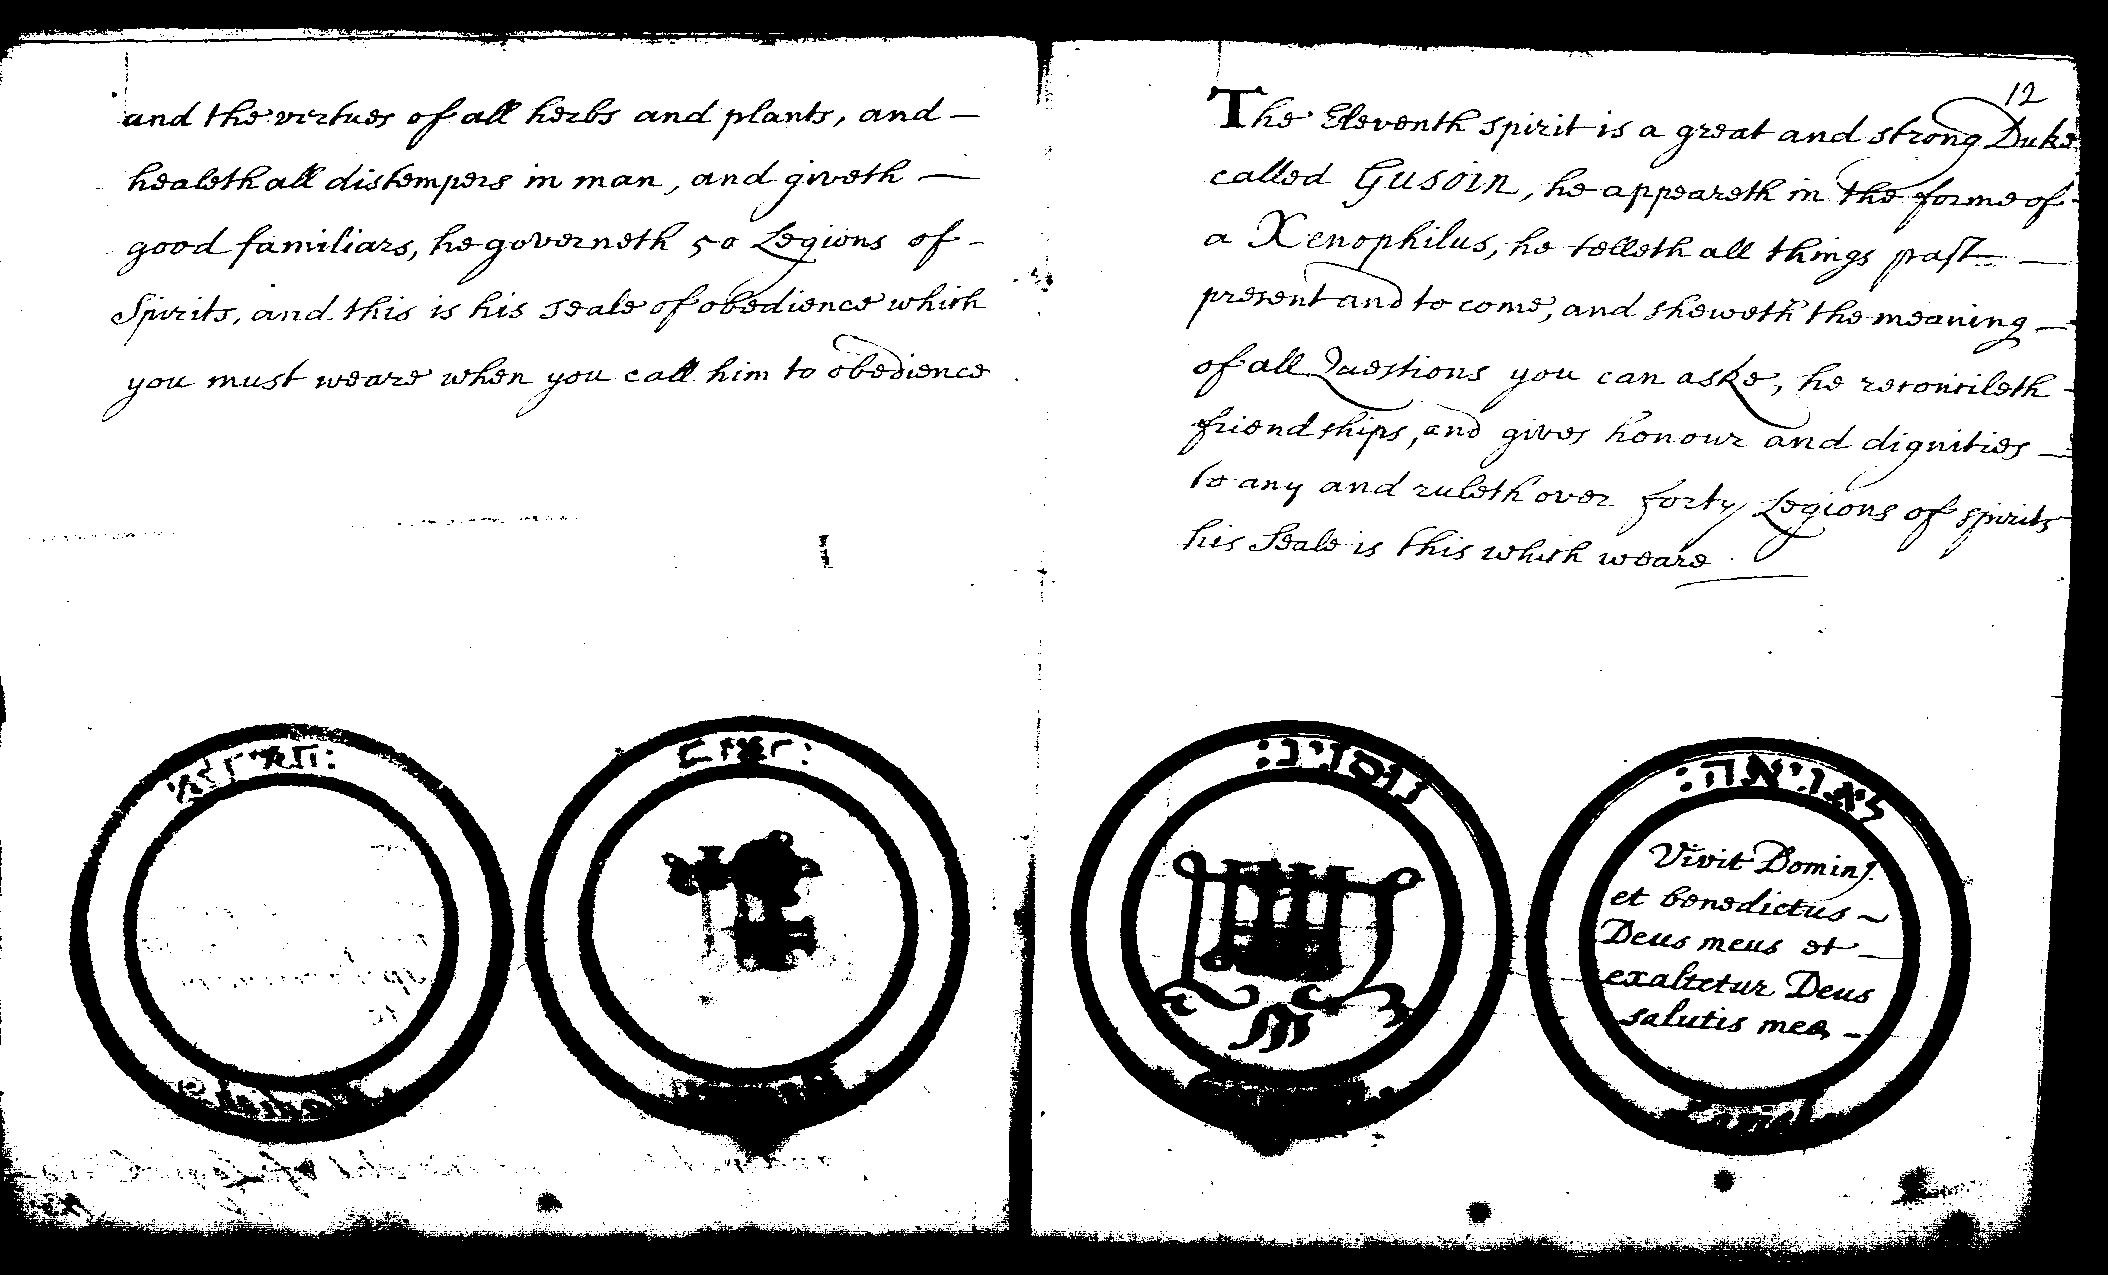 and the virtues of all herbs and plants, and —
healeth all distempers in man, and giveth —
good familiars, he governeth 50 Legions of -
Spirits, and this is his seale of obedience which
you must weare when you call him to obedience
12
The Eleventh spirit is a great and strong Duke
called Gusoin, he appeareth in the forme of
a Xenophilus, he telleth all things past —
present and to come, and sheweth the meaning —
of all Questions you can aske, he reconcileth -
friendships, and gives honour and dignities —
to any and ruleth over forty Legions of spirits
his Seale is this which weare
Vivit Domin9.
et benedictus ~
Deus meus et —
exaltetur Deus
salutis meæ -